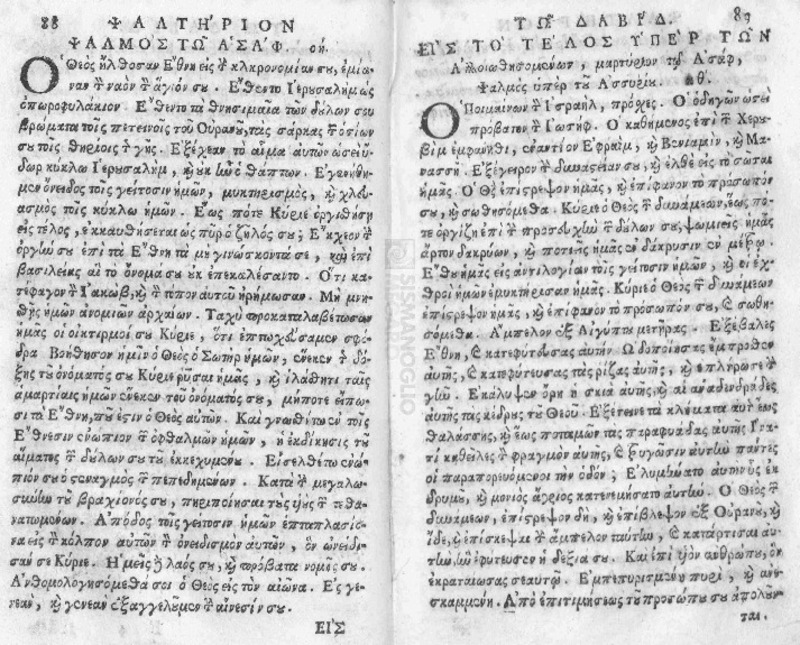 88 ΨΑΛΤΗΡΙΟΝ
ΨΑΛΜΟΣ ΤΩ͂ ἈΣΑΦ. οή.
Ὁ Θεὸς ἤλθοσαν Ἔθνη εἰς τ κληρονομίαν σου, ἐμία-
ναν τ ναὸν τ ἅγιόν σου. Ἔθεντο Ἱερυσαλὴμ ὡς
ὀπωροφυλάκιον. Ἔθεντο τὰ θνησιμαῖα τῶν δύλων σου
βρώματα τοῖς πετεινοῖς τοῦ Ὀυρανῦ, τας σάρκας τ ὁσίων
συ τοῖς θηρίοις τ γῆς. Ἐξέχεαν τὸ αἷμα αὐτῶν ὡσεὶ ὕ-
δωρ κύκλῳ Ἱερυσαλὴμ, κ̀ υκ ἦν ὁ θάπτων. Ἐγενήθη-
μεν ὄνειδος τοῖς γείτοσιν ἡμῶν, μυκτηρισμὸς, κ̀ χλευ-
ασμὸς τοῖς κύκλῳ ἡμῶν. Ἕως πότε Κύριε ὀργισθήσῃ
εἰς τέλος, ἐκκαυθήσεται ὡς πῦρ ὁ ζῆλός συ; Ἔκχεον τ
ὀργήν συ ἐπὶ τὰ Ἔθνη τὰ μὴ γινώσκοντά σε, κ̀ ἐπὶ
βασιλείας αἳ τὸ ὄνομα συ υκ ἐπεκαλέσαντο. Ὅτι κα-
τέφαγον τ Ἰακὼβ, κ̀ τ τόπον αὐτοῦ ἠρήμωσαν. Μὴ μνη-
θῇς ἡμῶν ἀνομιῶν ἀρχαίων. Ταχὺ προκαταλαβέτωσαν
ἡμᾶς οἱ οἰκτιρμοί συ Κύριε, ὅτι ἐπτωχεύσαμεν σφό-
δρα Βοήθησον ἡμῖν ὁ Θεὸς ὁ Σωτὴρ ἡμῶν, ἕνεκεν τ δό-
ξης τῦ ὀνόματός συ Κύριε ῥῦσαι ἡμᾶς, κ̀ ἱλάσθητι ταῖς
ἁμαρτίαις ἡμῶν ἕνεκεν τοῦ ὀνόματός συ, μήποτε εἴπω-
σι τὰ Ἔθνη, πῦ ἐστιν ὁ Θεὸς αὐτῶν. Καὶ γνωσθήτω ἐν τοῖς
Ἔθνεσιν ἐνώπιον τ ὀφθαλμῶν ἡμῶν, ἡ ἐκδίκησις τῦ
αἵματος τ δύλων συ τῦ ἐκκεχυμένυ. Εἰσελθέτω ἐνώ-
πιόν συ ὁ στεναγμὸς τ πεπεδημένων. Κατὰ τ μεγαλω-
σύνην τῦ βραχίονός συ, περιποίησαι τὺς υἱὺς τ τεθα-
νατωμένων. Ἀπόδος τοῖς γείτοσιν ἡμῶν ἑπταπλασίο-
να εἰς τ κόλπον αὐτῶν τ ὀνειδισμὸν αὐτῶν, ὃν ὠνείδι-
σάν σε Κύριε. Ἡμεῖς δὲ λαός συ, κ̀ πρόβατα νομῆς συ.
Ἀνθομολογησόμεθά σοι ὁ Θεὸς εἰς τὸν αἰῶνα. Εἰς γε-
νεὰν, κ̀ γενεὰν ἐξαγγελῦμεν τ αἴνεσίν συ.
ΕΙΣ
ΤΩ͂ ΔΑΒΙΔ. 89
ΕΙΣ ΤΟ ΤΕΛΟΣ ΥΠΕΡ ΤΩΝ
Ἀλλοιωθησομένων, μαρτύριον τῷ Ἀσάφ,
Ψαλμὸς ὑπὲρ τῦ Ἀσσυρίυ. οθ.
Ὁ Ποιμαίνων τ Ἰσραὴλ, πρόσχες. Ὁ ὁδηγῶν ὡσεὶ
πρόβατον τ Ἰωσήφ. Ὁ καθήμενος ἐπὶ τ Χερυ-
βὶμ ἐμφάνηθι, ἐναντίον Ἐφραὶμ, κ̀ Βενιαμὶν, κ̀ Μα-
νασσῆ. Ἐξέγειρον τ δυναστείαν συ, κ̀ ἐλθὲ εἰς τὸ σῶσαι
ἡμᾶς. Ὁ Θς ἐπίστρεψον ἡμᾶς, κ̀ ἐπίφανον τὸ πρόσωπόν
συ, κ̀ σωθησόμεθα. Κύριε ὁ Θεὸς τ δυνάμεων, ἕως πό-
τε ὀργίζῃ ἐπὶ τ προσευχὴν τ δύλων συ, ψωμιεῖς ἡμᾶς
ἄρτον δακρύων, κ̀ ποτιεῖς ἡμᾶς ἐν δάκρυσιν ἐν μέτρῳ.
Ἔθυ ἡμᾶς εἰς ἀντιλογίαν τοῖς γείτοσιν ἡμῶν, κ̀ οἱ ἐχ-
θροὶ ἡμῶν ἐμυκτήρισαν ἡμᾶς. Κύριε ὁ Θεὸς τ δυνάμεων
ἐπίστρεψον ἡμᾶς, κ̀ ἐπίφανον τὸ πρόσωπόν συ, κ̀ σωθη-
σόμεθα. Ἄμπελον ἐξ Αἰγύπτυ μετῆρας. Ἐξέβαλες
Ἔθνη, κ̀ κατεφύτευσας αὐτήν. Ὡδοποίησας ἔμπροσθεν
αὐτῆς, κ̀ κατεφύτευσας τὰς ῥίζας αὐτῆς, κ̀ ἐπλήρωσε τ
γῆν. Ἐκάλυψεν ὄρη ἡ σκιὰ αὐτῆς, κ̀ αἱ ἀναδενδράδες
αὐτῆς τὰς κέδρυς τῦ Θεοῦ. Ἐξέτεινε τὰ κλήματα αὐτ ἕως
θαλάσσης, κ̀ ἕως ποταμῶν τὰς παραφυάδας αὐτῆς Ἱνα-
τί καθεῖλες τ φραγμὸν αὐτῆς, κ̀ τρυγῶσιν αὐτὴν πάντες
οἱ παραπορευόμενοι τὴν ὁδόν; Ἐλυμήνατο αὐτὴν ὗς ἐκ
δρυμῦ, κ̀ μονιὸς ἄγριος κατενεμήσατο αὐτήν. Ὁ Θεὸς τ
δυνάμεων, ἐπίστρεψον δὴ, κ̀ ἐπίβλεψον ἐξ Ὀυρανῦ, κ̀
ἴδε, κ̀ ἐπίσκεψαι τ ἄμπελον ταύτην, κ̀ κατάρτισαι αὐ-
τὴν, ἣν ἐφύτευσεν ἡ δεξιά συ. Καὶ ἐπὶ υἱὸν ἀνθρώπυ, ὃν
ἐκραταίωσας σεαυτῷ. Ἐμπεπυρισμένη πυρὶ, κ̀ ἀνε-
σκαμμένη. Ἀπὸ ἐπιτιμήσεως τῦ προσώπυ συ ἀπολῦν-
ται.
SISMANOGLIO